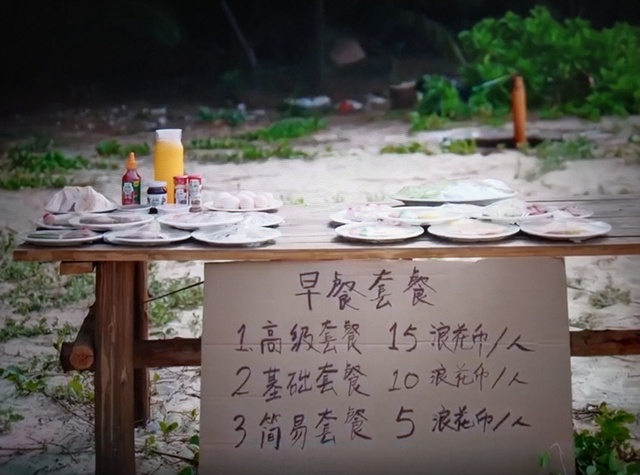 早餐套餐
1.高级套餐 15浪花币/人
2 基础套餐 10浪花币/人
3 简易套餐 5浪花币/人